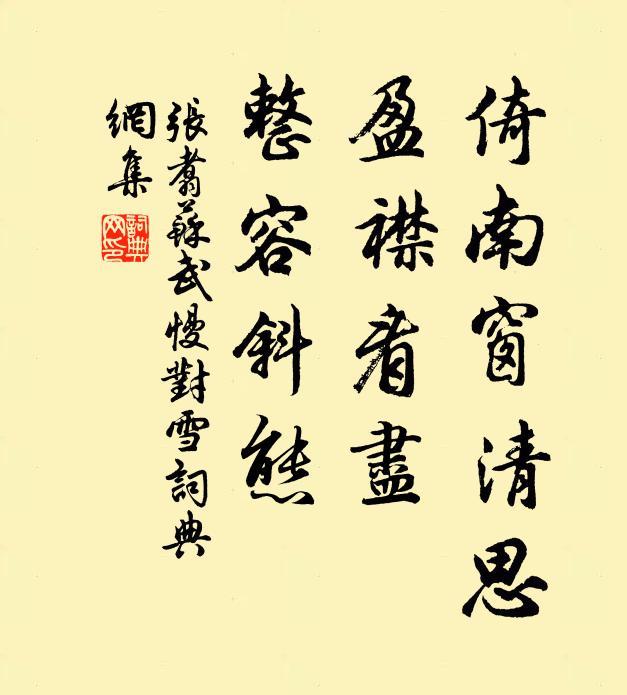 倚南窗清思
盈襟看盡
整容斜態
張翥蘇武慢對雪詞典
網集
詞典
网印